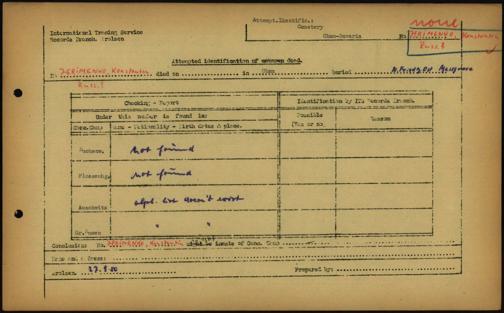 Attempt.Identific.:
Cemetery
Cham-Bavaria
No.
none
JERIMENKO, Konstantin
Russ.?
International Tracing Service
Records Branch, Arolsen
Attempted identification of unknown dead.
JERIMENKO, Konstantin died on in Cham buried
Russ.?
Checking - Report
Under this number is found in:
Conc.Camp Name - Nationality - Birth date & place.
Identification by ITS Records Branch.
Possible
(Yes or no)
Reason
Buchenw. Not found
Flossenbg. Not found
Auschwitz alph. list doesn't exist
Gr.Rosen " "
Conclusion: No. JERIMENKO, Konstantin inmate of Conc. Camp
Arolsen, 27.9.50 Prepared by: